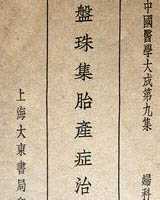 中國醫學大成第九集
婦科
盤珠集胎產症治
上海大東書局